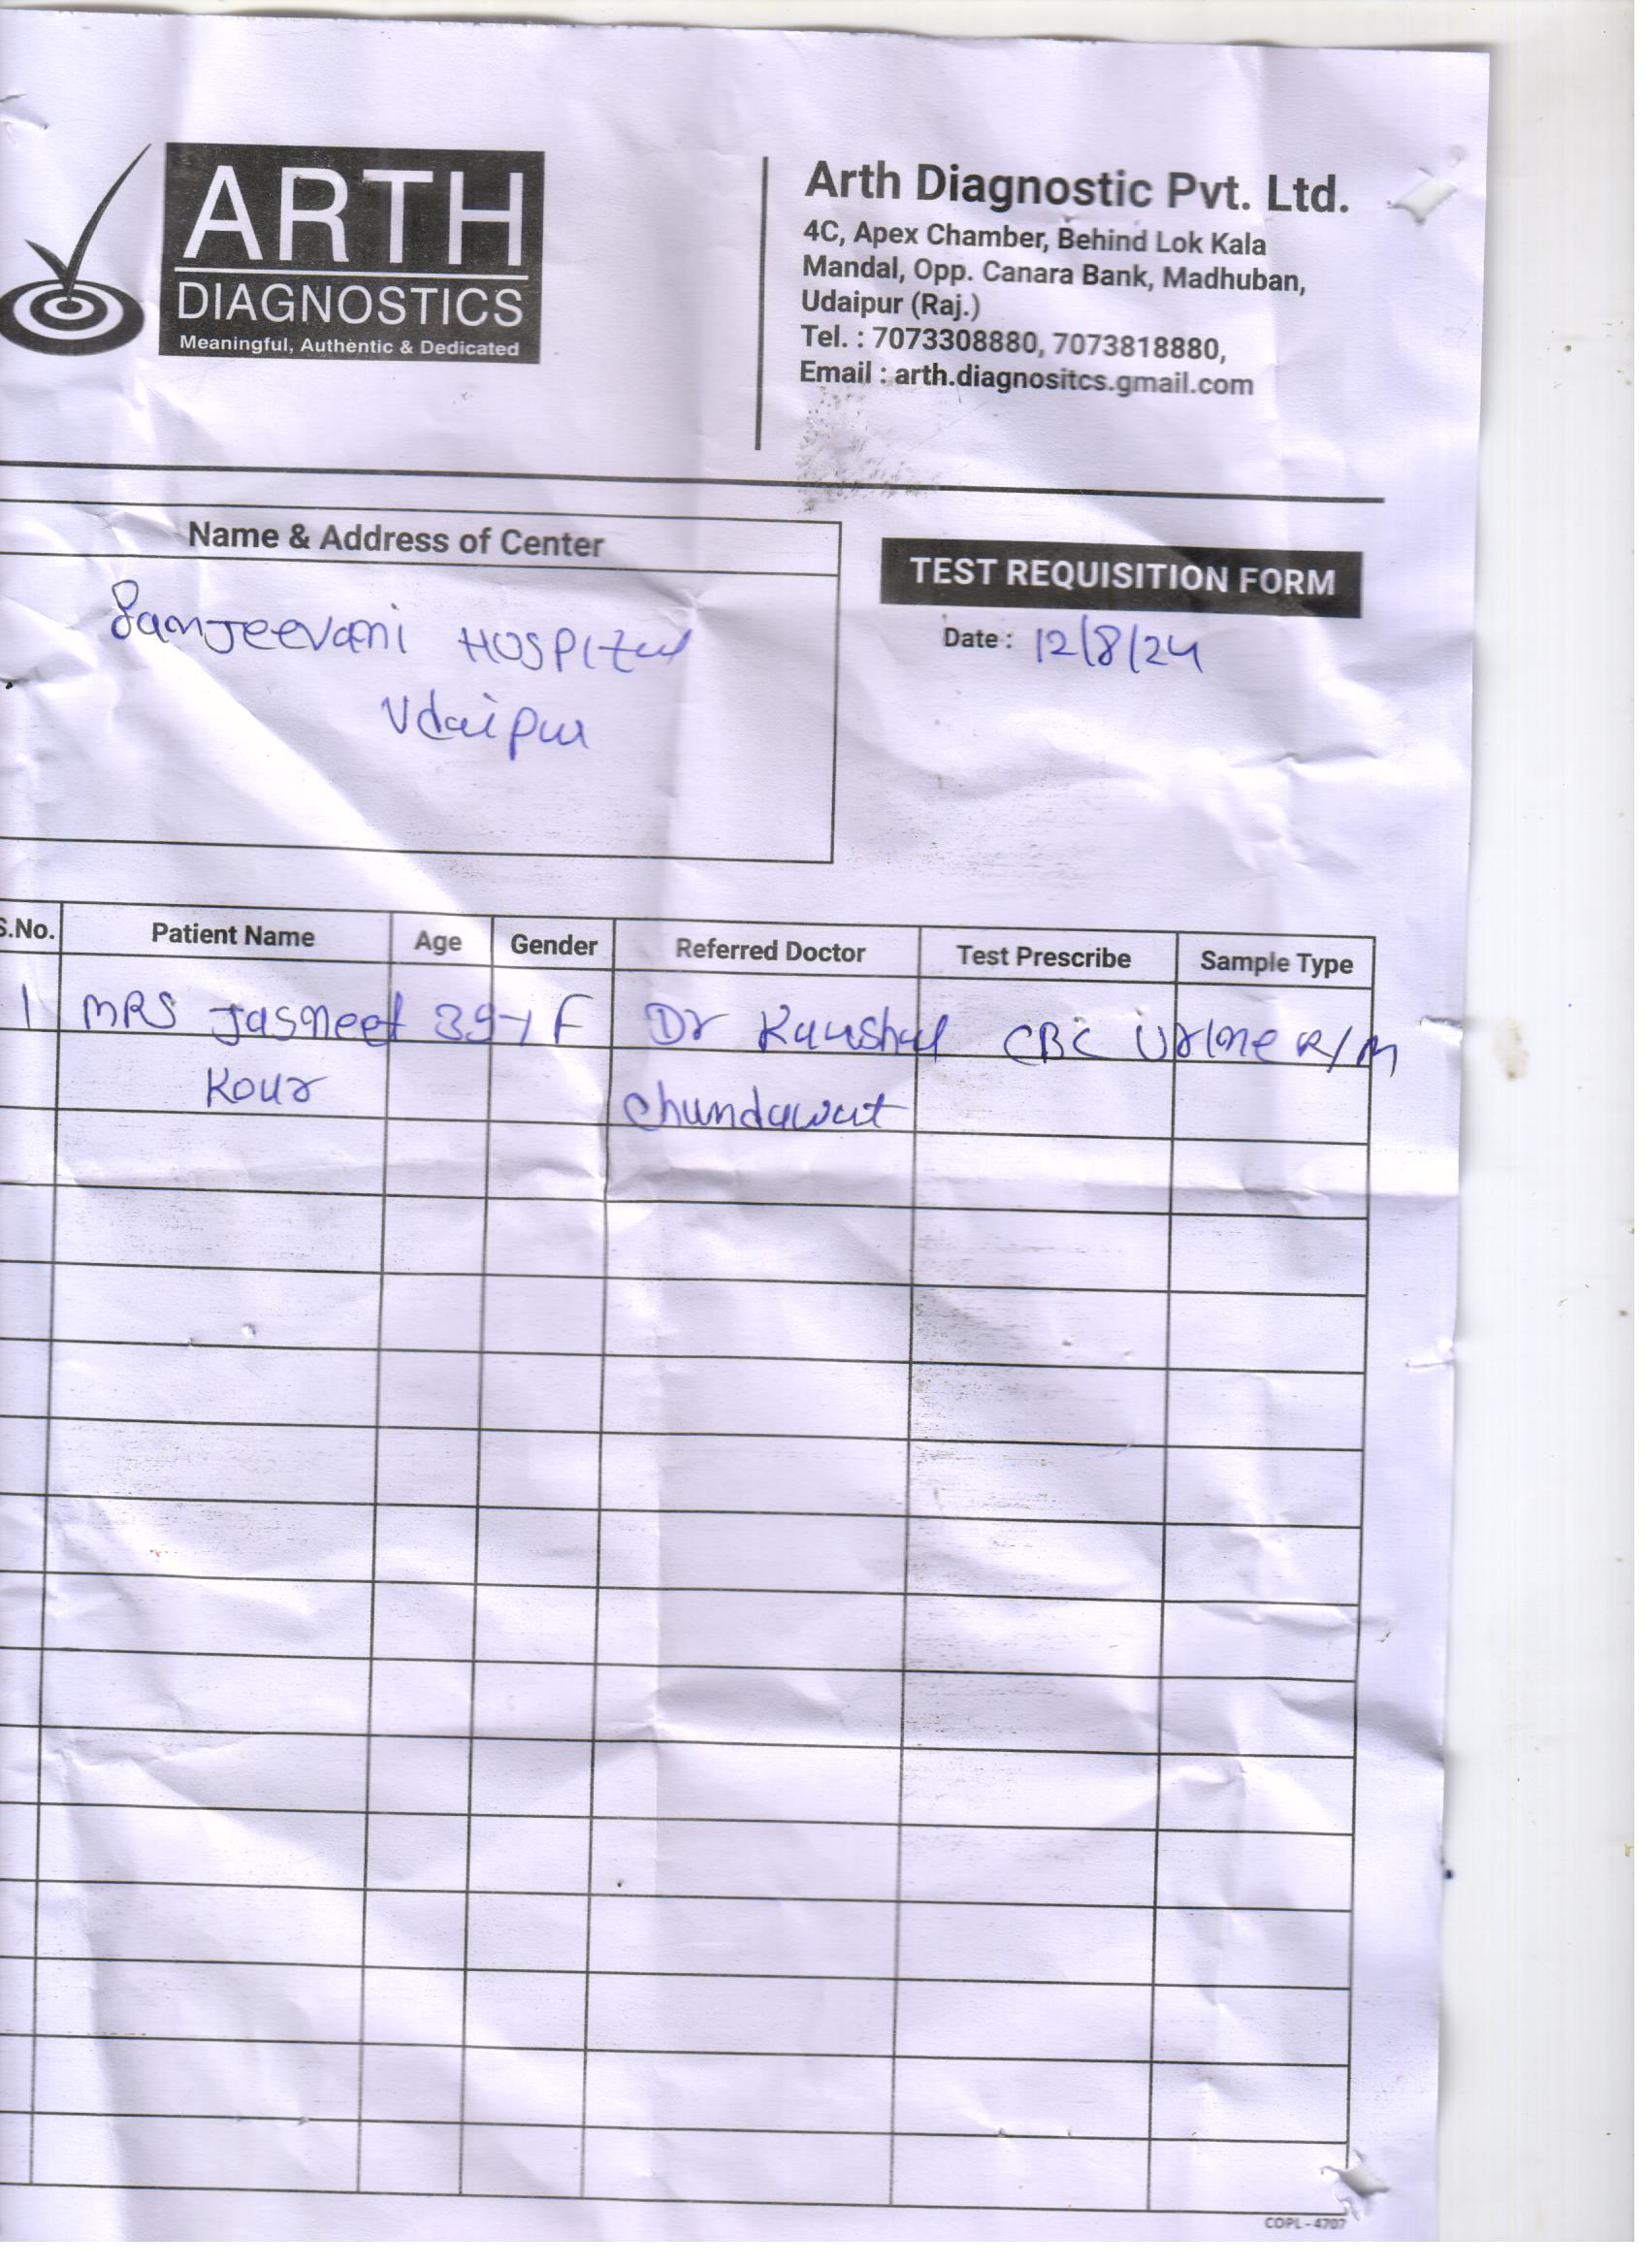 ARTH
DIAGNOSTICS
Meaningful, Authentic & Dedicated
Arth Diagnostic Pvt. Ltd.
4C, Apex Chamber, Behind Lok Kala
Mandal, Opp. Canara Bank, Madhuban,
Udaipur (Raj.)
Tel. : 7073308880, 7073818880,
Email : arth.diagnositcs.gmail.com
Name & Address of Center
Sanjeevani HOSPITal
Udaipur
TEST REQUISITION FORM
Date : 12/8/24
S.No. Patient Name Age Gender Referred Doctor Test Prescribe Sample Type
1 MRS Jasmeet 39 F Dr Kaushal CBC Urine R/M
Kour Chundawat
COPL - 4707